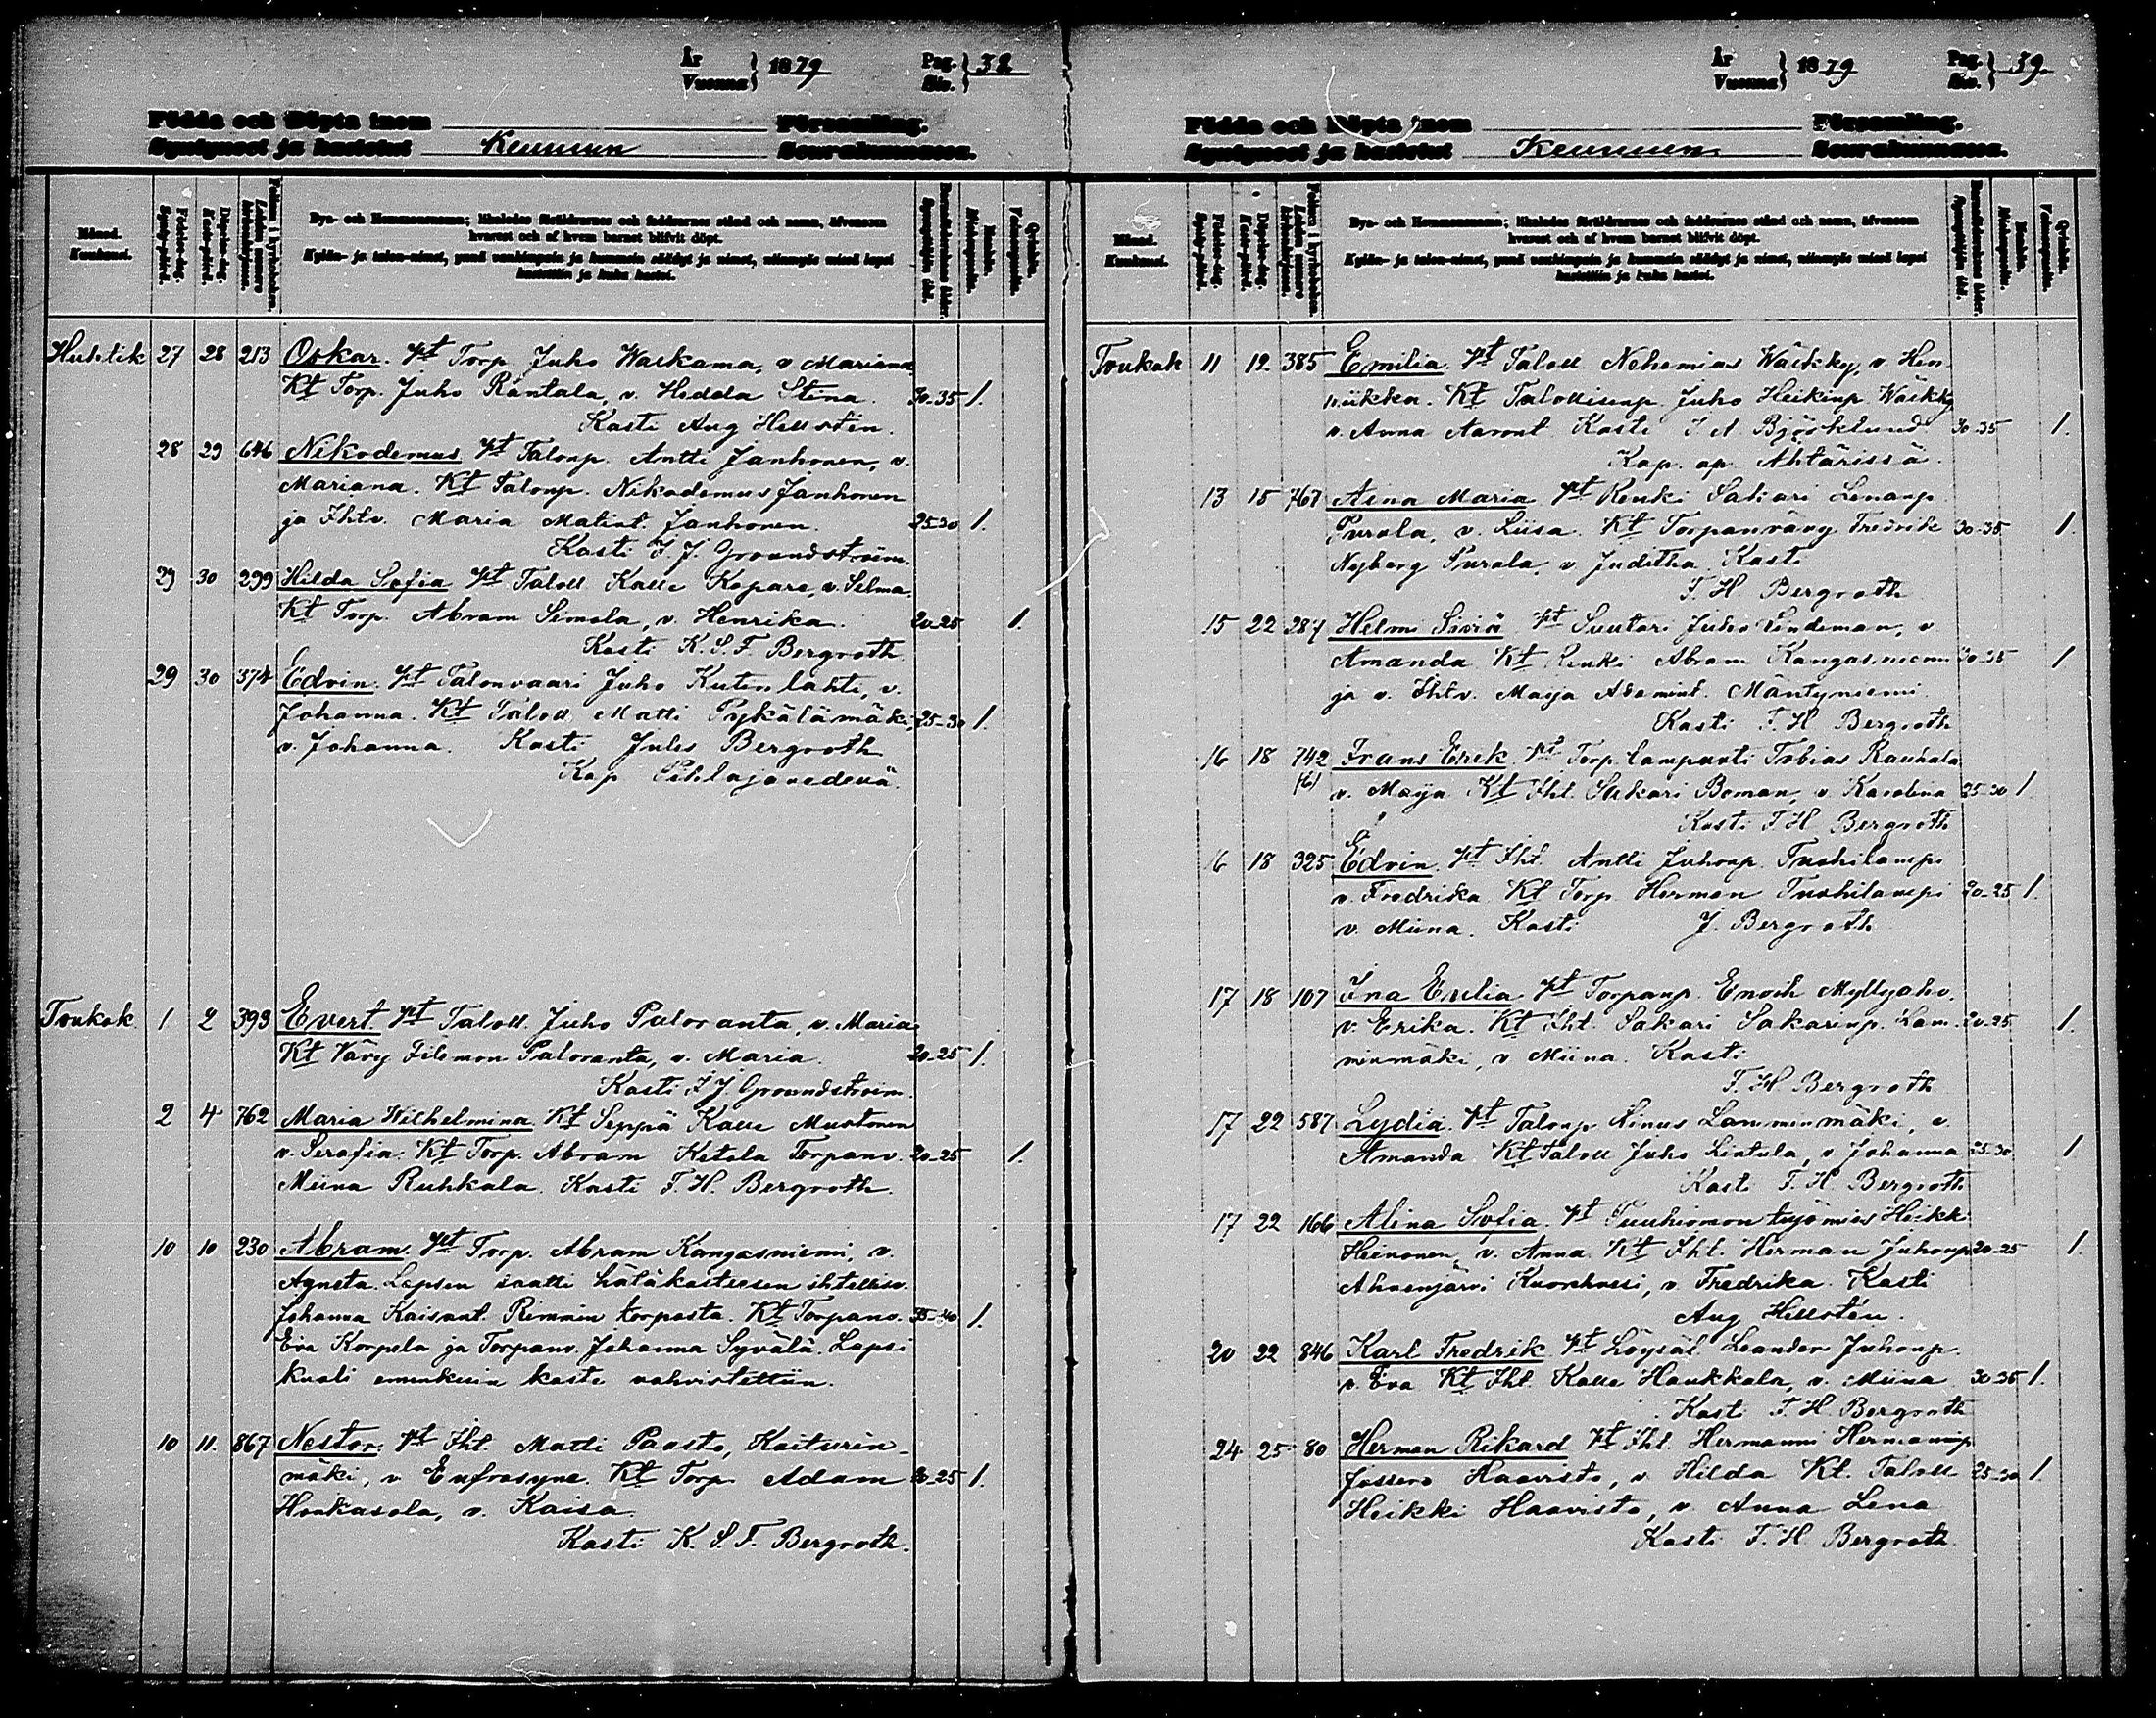 År
Vuonna } 1879
Pag.
Siv. } 38
Födda och Döpta inom Församling.
Syntyneet ja kastetut Keuruun Seurakunnassa.
Månad.
Kuukausi.
Födelse-dag.
Synty-päivä.
Döpelse-dag.
Kaste-päivä.
By- och Hemmansnamn; likaledes föräldrarnes och faddrarnes stånd och namn, äfvensom
hvarest och af hvem barnet blifvit döpt.
Kylän- ja talon-nimet, ynnä vanhimpain ja kummein säädyt ja nimet, niinmyös missä lapsi
kastettiin ja kuka kastoi.
Huhtik 27 28 213 Oskar. Vt Torp. Juho Waskama, v. Mariana
Kt Torp. Juho Rantala, v. Hedda Stina. 30-35 1.
Kasti Aug Hellstén.
28 29 646 Nikodemus Vt Talonp. Antti Janhonen, v.
Mariana. Kt Talonp. Nikodemus Janhonen
ja Ihtv. Maria Matint. Janhonen. 25-30 1.
Kasti F. J. Groundstroem.
29 30 299 Hilda Sofia Vt Taloll Kalle Kopare, v. Selma
Kt Torp. Abram Semola, v. Henrika. 20-25 1.
Kasti K. S. F. Bergroth
29 30 374 Edvin. Vt Talonvaari Juho Kutenlahti, v.
Johanna. Kt Taloll Matti Pykälämäki, 25-30 1.
v. Johanna. Kasti Julis Bergroth
Kap Pihlajavedenä.
Toukok 1 2 393 Evert Vt Taloll. Juho Paloranta, v. Maria
Kt Vävy Filemon Paloranta, v. Maria. 20-25 1.
Kasti F J Groundstroem.
2 4 762 Maria Wilhelmina Kt Seppä Kalle Mustonen
v. Serafia. Kt Torp. Abram Ketola Torpanv. 20-25 1.
Miina Ruhkala. Kasti F. H. Bergroth.
10 10 230 Abram. Vt Torp. Abram Kangasniemi, v.
Agneta. Lapsen saatti hätäkasteesen ihtellisv.
Johanna Kaisant. Rimmin torpasta. Kt Torpanv. 35-40 1.
Eva Korpela ja Torpanv. Johanna Syvälä. Lapsi
kuoli ennenkuin kaste vahvistettiin.
10 11. 867 Nestor. Vt Iht. Matti Paasto, Kaiturin-
mäki, v. Eufrosyne. Kt Torp. Adam 20-25 1.
Honkasola, v. Kaisa
Kasti K. S. F. Bergroth.
År
Vuonna } 1879
Pag.
Siv. } 39.
Födda och Döpta inom Församling.
Syntyneet ja kastetut Keuruun Seurakunnassa.
Månad.
Kuukausi.
Födelse-dag.
Synty-päivä.
Döpelse-dag.
Kaste-päivä.
By- och Hemmansnamn; likaledes föräldrarnes och faddrarnes stånd och namn, äfvensom
hvarest och af hvem barnet blifvit döpt.
Kylän- ja talon-nimet, ynnä vanhimpain ja kummein säädyt ja nimet, niinmyös missä lapsi
kastettiin ja kuka kastoi.
Toukok 11 12 385 Emilia. Vt Taloll. Nehemias Wäikky, v. Hen-
riikka. Kt Talollisenp. Juho Heikinp Wäikky
v. Anna Aaront. Kasti Björklund 30-35 1.
Kap. ap. Ahtärissä.
13 15 767 Aina Maria Vt Renki Sakari Lenanp.
Purala, v. Liisa. Kt Torpanvävy Fredrik 30-35 1.
Nyberg Purala, v. Juditha. Kasti
F. H. Bergroth
15 22 287 Helmi Siviä Vt Suutari Juho Lindeman, v
Amanda Kt Renki Abram Kangasniemi 30-35 1
ja v. Ihtv. Maija Adamint. Mäntyniemi.
Kasti F. H Bergroth
16 18 742 Frans Erik Vt Torp. lampuoti Tobias Rauhala
v. Maija Kt Iht. Sakari Boman, v. Karolina 25-30 1
Kasti F H Bergroth
16 18 325 Edvin. Vt Iht. Antti Juhonp. Tuohilampi
v. Fredrika Kt Torp Herman Tuohilampi 20-25 1.
v. Miina. Kasti J. Bergroth
17 18 107 Ina Emilia Vt Torpanp. Enoch Myllyaho,
v. Erika. Kt Iht. Sakari Sakarinp. Lam- 20-25 1.
minmäki, v Miina. Kasti
F. H Bergroth
17 22 587 Lydia. Vt Talonp. Linus Lamminmäki, v.
Amanda Kt Taloll Juho Lintula, v Johanna 25-30 1
Kasti F. H. Bergroth
17 22 166 Alina Sofia. Vt Heikki
Heinonen, v. Anna Kt Iht. Herman Juhonp 20-25 1.
Ahvenjärvi v. Fredrika. Kasti
Aug Hellstén.
20 22 846 Karl Fredrik Vt Löysäl Leander Juhonp.
v. Eva Kt Iht. Kalle Haukkala, v. Miina 30-35 1.
Kasti F. H. Bergroth
24 25 80 Herman Rikard Vt Iht. Hermanni Hermanninp
Haavisto, v. Hilda Kt. Taloll 25-30 1.
Heikki Haavisto, v. Anna Lena
Kasti F. H Bergroth.